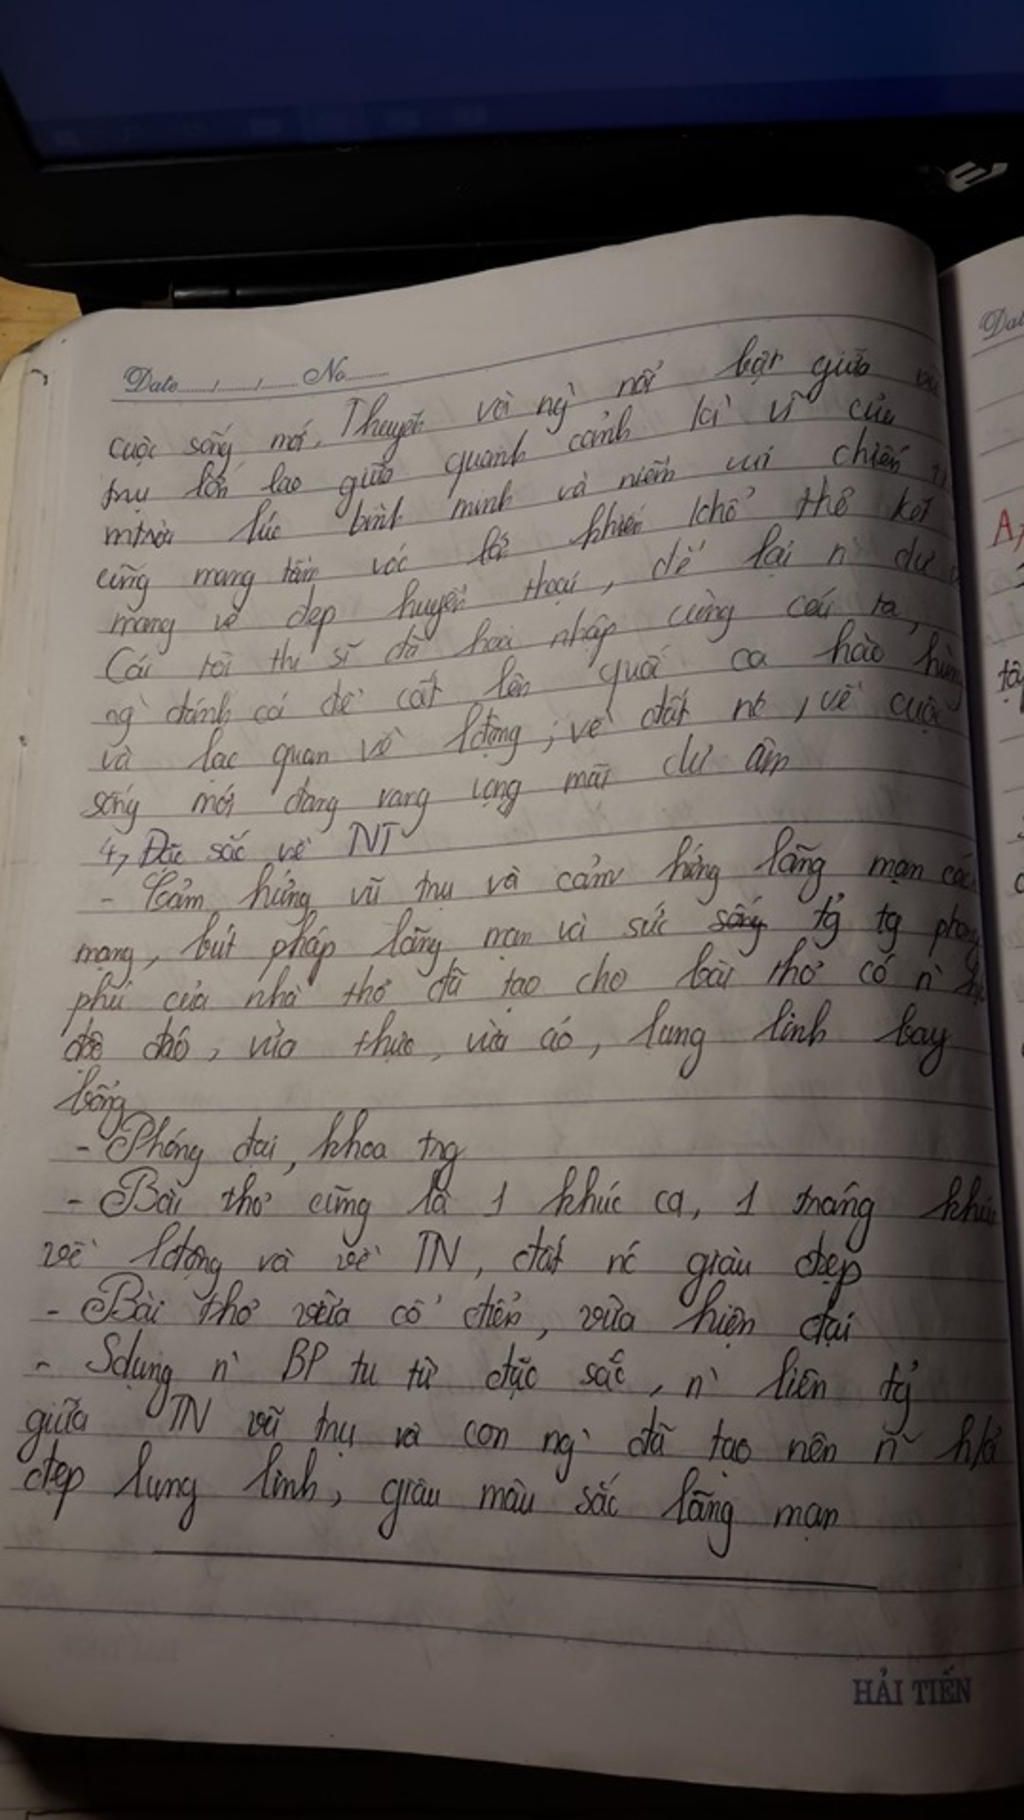 Date No
cuộc sống mới. Thuyền và ng` nổi bật giữa vũ
trụ lớn lao giữa quanh cảnh kì vĩ của
mtrời lúc bình minh và niềm vui chiến
cũng mang tầm vóc lớn khiến khổ thơ kết
mang vẻ đẹp huyền thoại, để lại n~ dư
Cái tôi thi sĩ đã hoà nhập cùng cái ta,
ng` đánh cá để cất lên quốc ca hào hùng
và lạc quan về lđộng, về đất nc, về cuộc
sống mới đang vang vọng mãi dư âm
4, Đặc sắc về NT
- Cảm hứng vũ trụ và cảm hứng lãng mạn cách
mạng, bút pháp lãng mạn và sức sống tg tg phong
phú của nhà thơ đã tạo cho bài thơ có n~
độc đáo, vừa thực, vừa ảo, lung linh bay
bổng
- Phóng đại, khoa trg
- Bài thơ cũng là 1 khúc ca, 1 tráng khúc
về lđộng và về TN, đất nc giàu đẹp
- Bài thơ vừa cổ điển, vừa hiện đại
- Sdụng n~ BP tu từ đặc sắc, n~ liên tg
giữa TN vũ trụ và con ng` đã tạo nên n~ h/ả
đẹp lung linh, giàu màu sắc lãng mạn
HẢI TIẾN